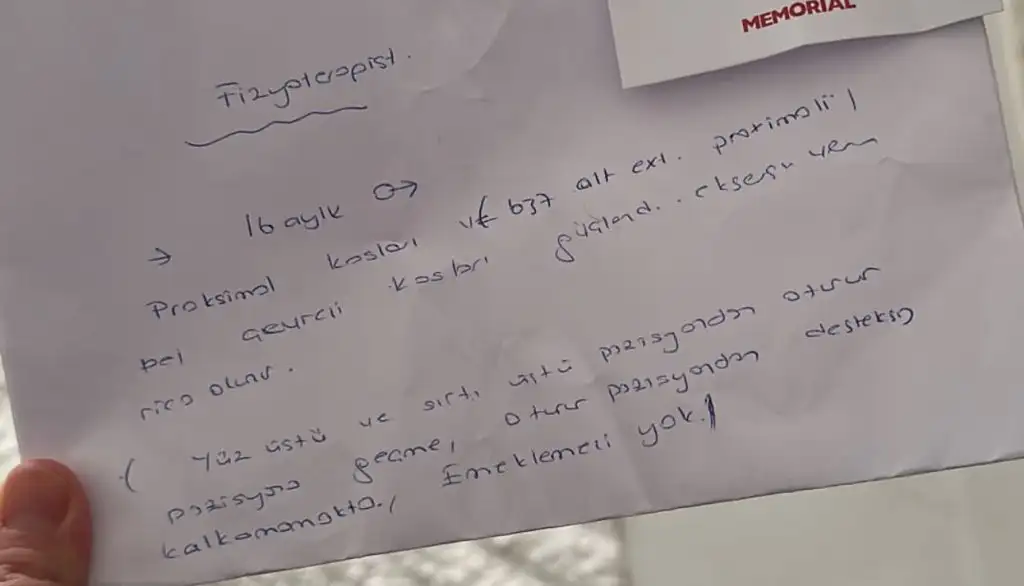 MEMORIAL
Fizyoterapist.
→ 16 aylık ♂
Proksimal kasları alt ext. proximali,
bel çevresi kasları güçlend. eksersiz verm
rica olunur.
( Yüz üstü ve sırt üstü pozisyondan oturur
pozisyona geçme, oturur pozisyondan desteksiz
kalkamamakta, Emeklemesi yok.)